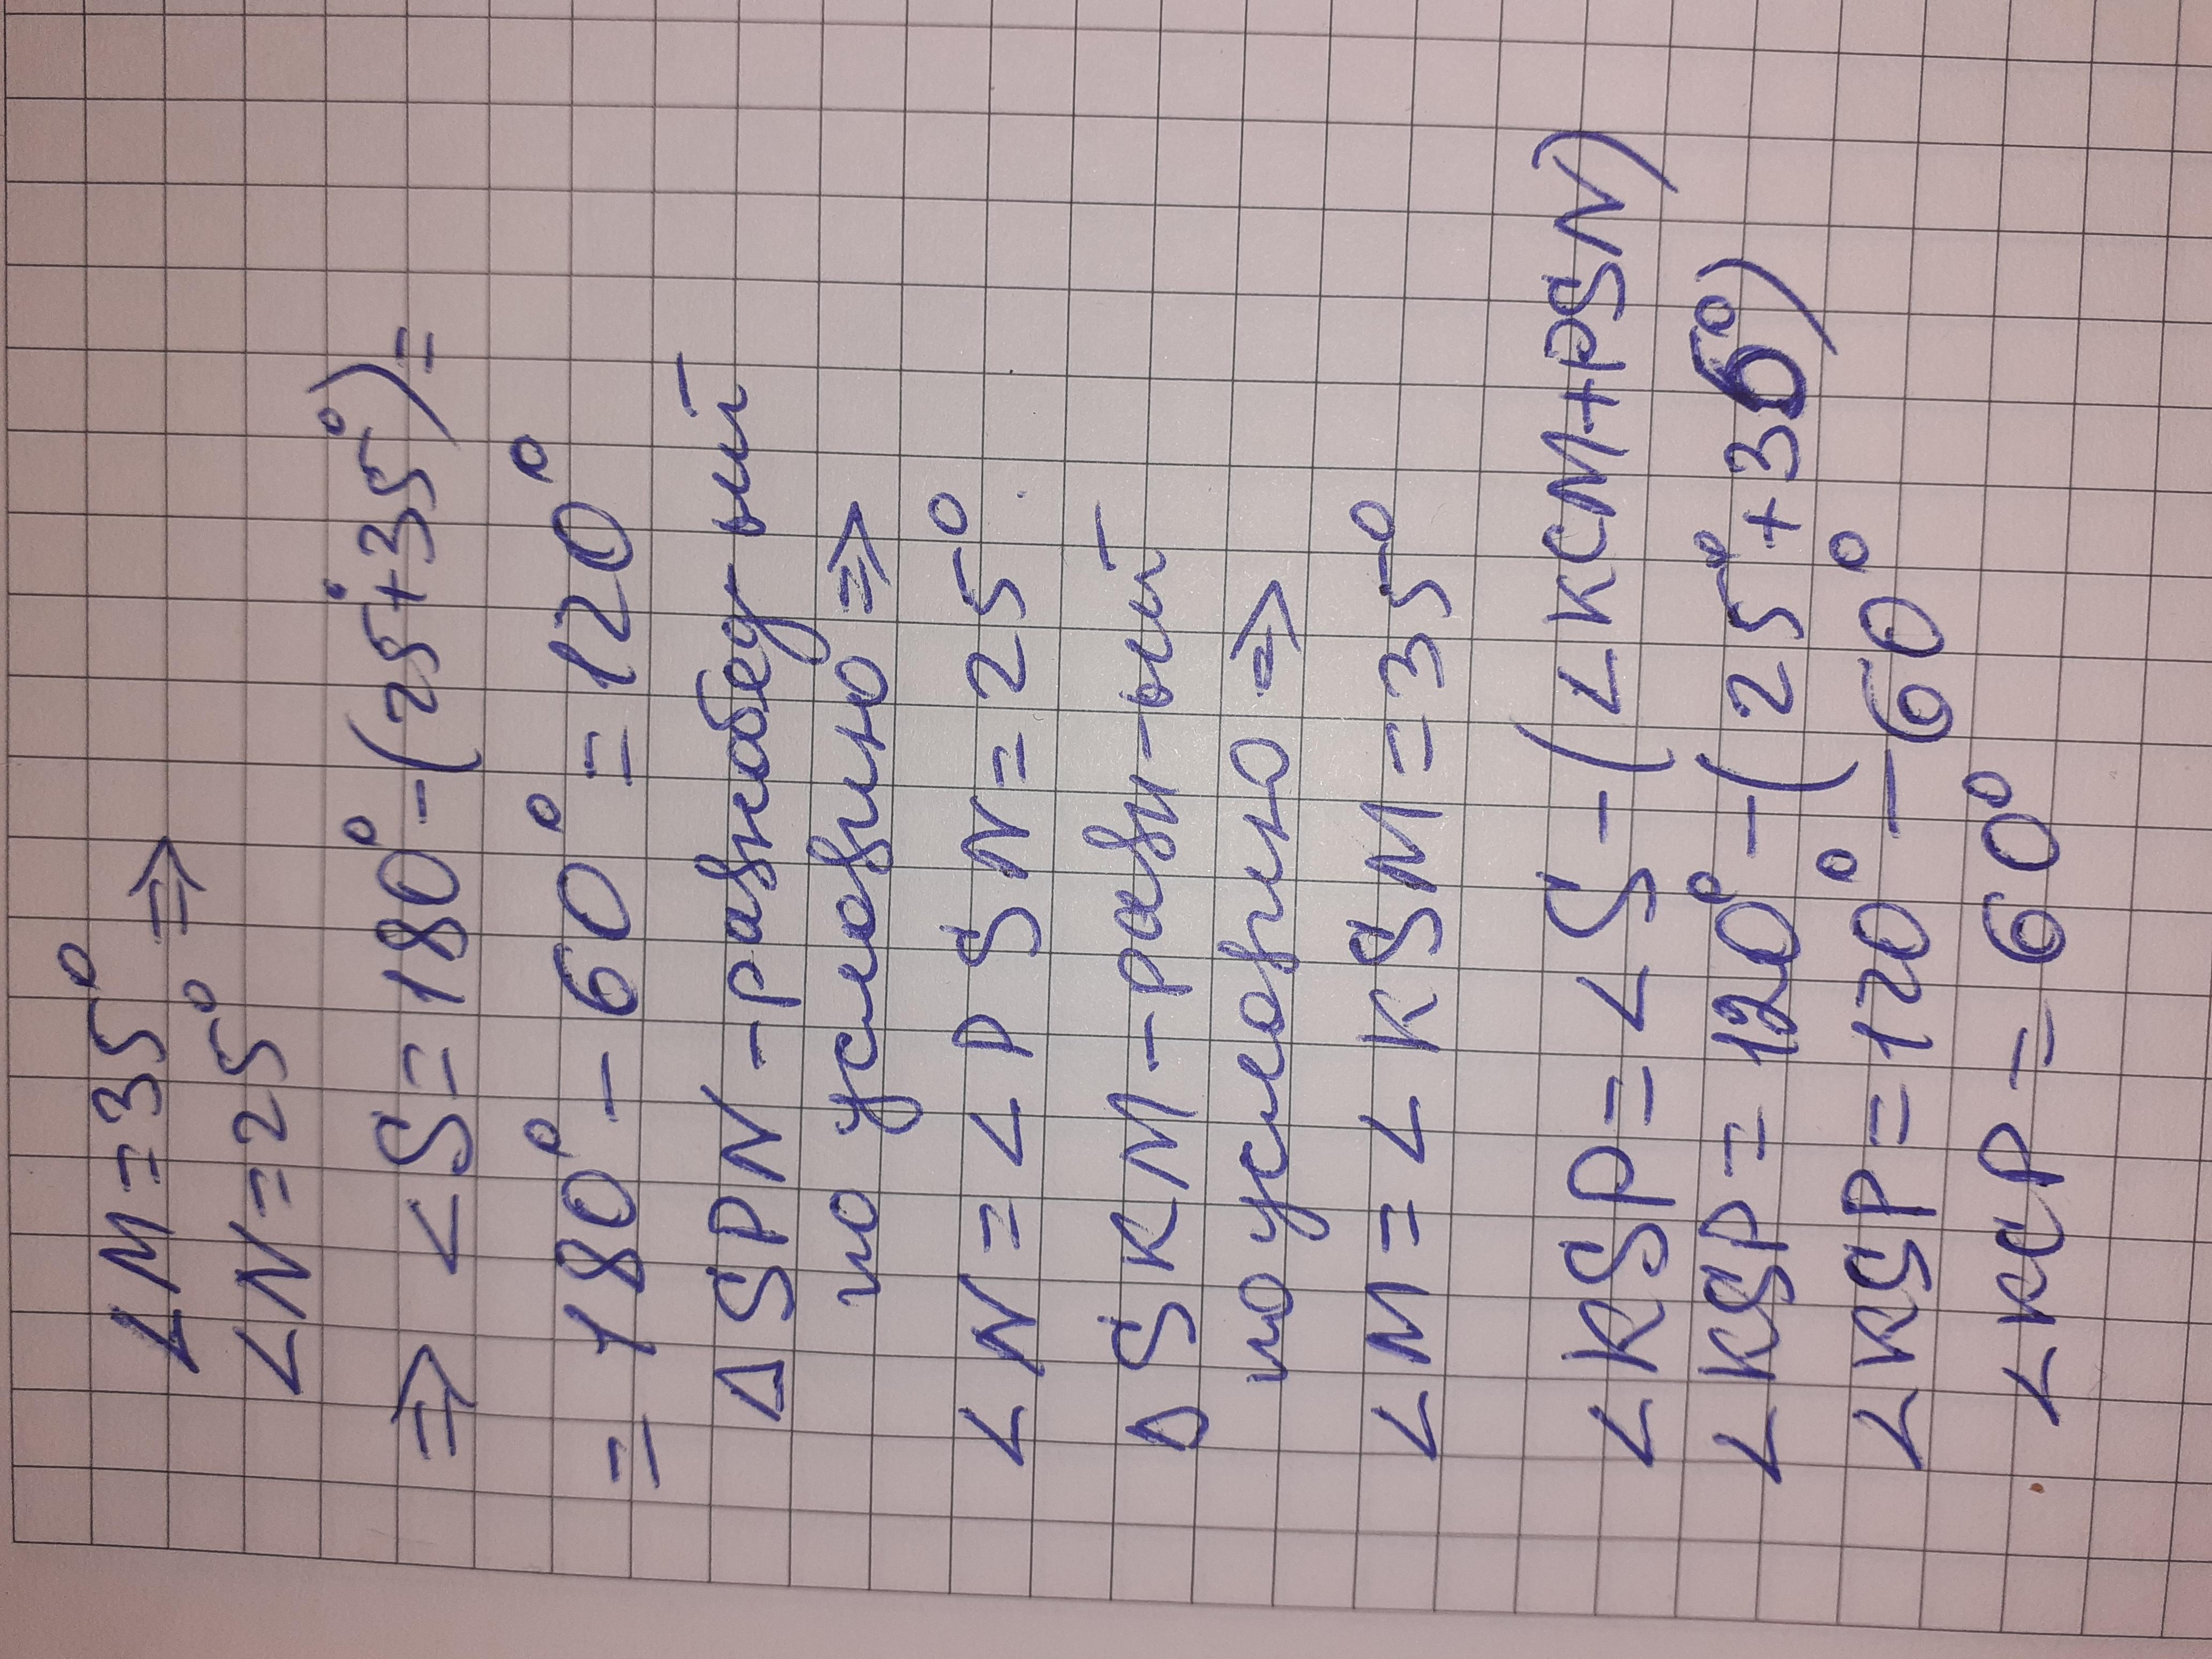 ∠M=35°
∠N=25° ⇒
⇒ ∠S=180°-(25°+35°)=
=180°-60°=120°
ΔSPN-равнобед-ый
по условию ⇒
∠N=∠PSN=25°
ΔSKM-равн-ый
по условию ⇒
∠M=∠KSM=35°
∠KSP=∠S-(∠KCM+PSN)
∠KSP=120°-(25°+35°)
∠KSP=120°-60°
∠KCP=60°